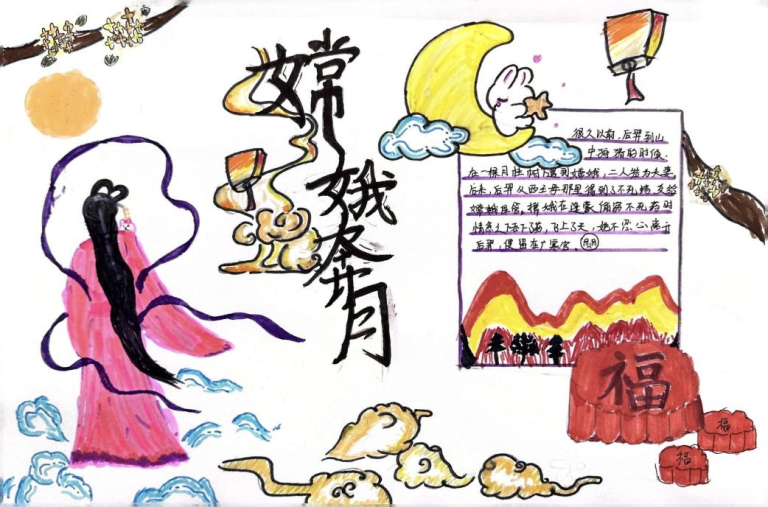 嫦娥奔月
很久以前，后羿到山
中狩猎的时候，
在一棵月桂树下遇到嫦娥，二人结为夫妻
后来，后羿从西王母那里得到了不死药，交给
嫦娥保管。嫦娥在逢蒙偷窃不死药的
情急之下吞下了药，飞上了天，她不忍心离开
后羿，便留在广寒宫。
福
福
福